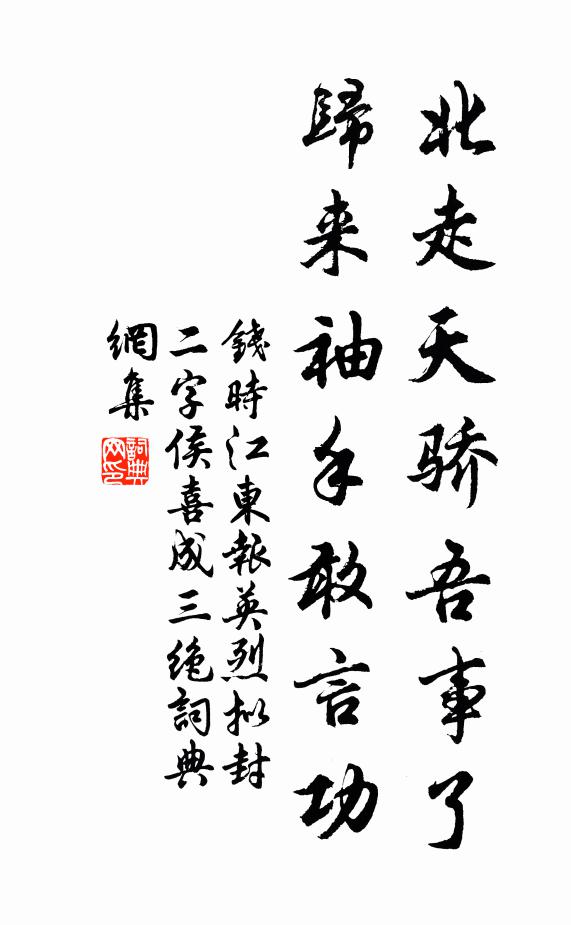 北走天骄吾事了
歸来袖手敢言功
錢時江東報英烈拟封
二字侯喜成三绝詞典
網集
詞典
网印